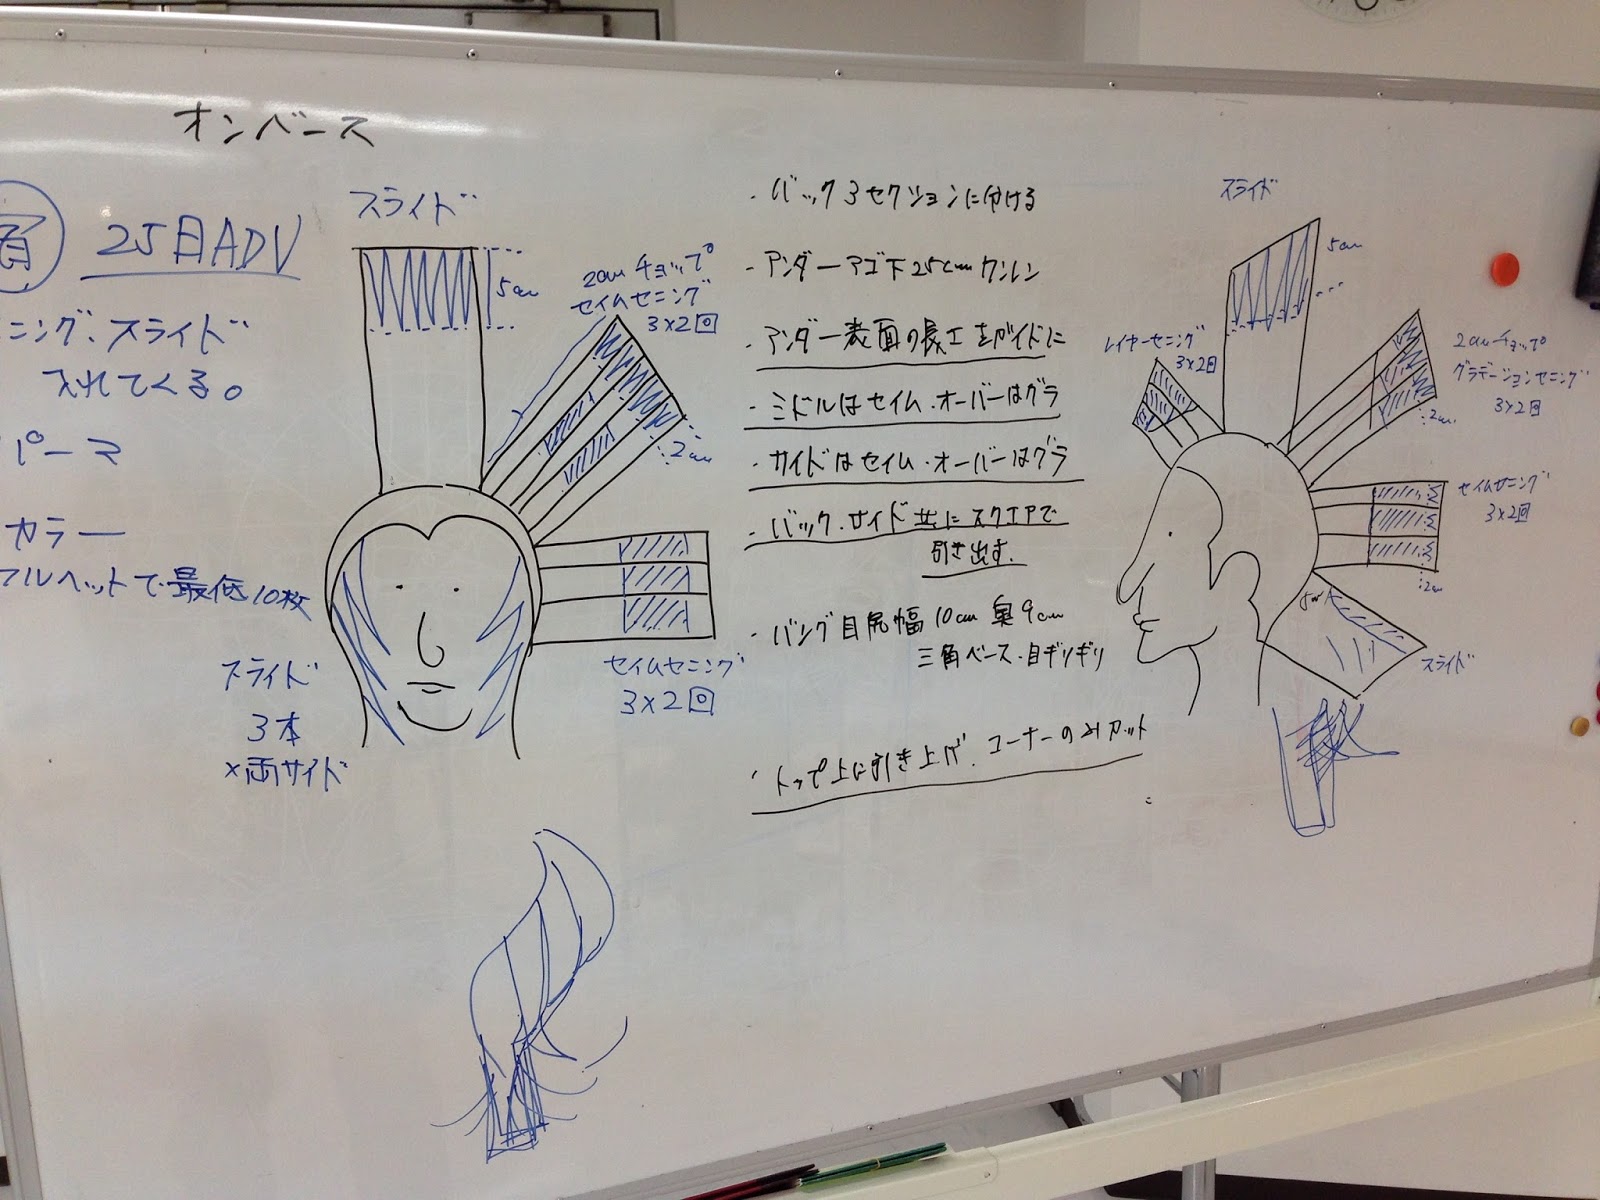 オンベース
25日ADV
ニング、スライド
入れてくる。
パーマ
カラー
アルヘットで最低10枚
スライド
5cm
2cmチョップ
セイムセニング
3×2回
2cm
セイムセニング
3×2回
スライド
3本
×両サイド
・バック3セクションに分ける
・アンダーアゴ下25cmワンレン
・アンダー表面の長さをガイドに
・ミドルはセイム・オーバーはグラ
・サイドはセイム・オーバーはグラ
・バック・サイド共にスクエアで
引き出す.
・バング目尻幅10cm奥9cm
三角ベース・目ギリギリ
・トップ上に引き上げ、コーナーのみカット
スライド
5cm
レイヤーセニング
3×2回
2cmチョップ
グラデーションセニング
3×2回
2cm
セイムセニング
3×2回
2cm
5cm
スライド